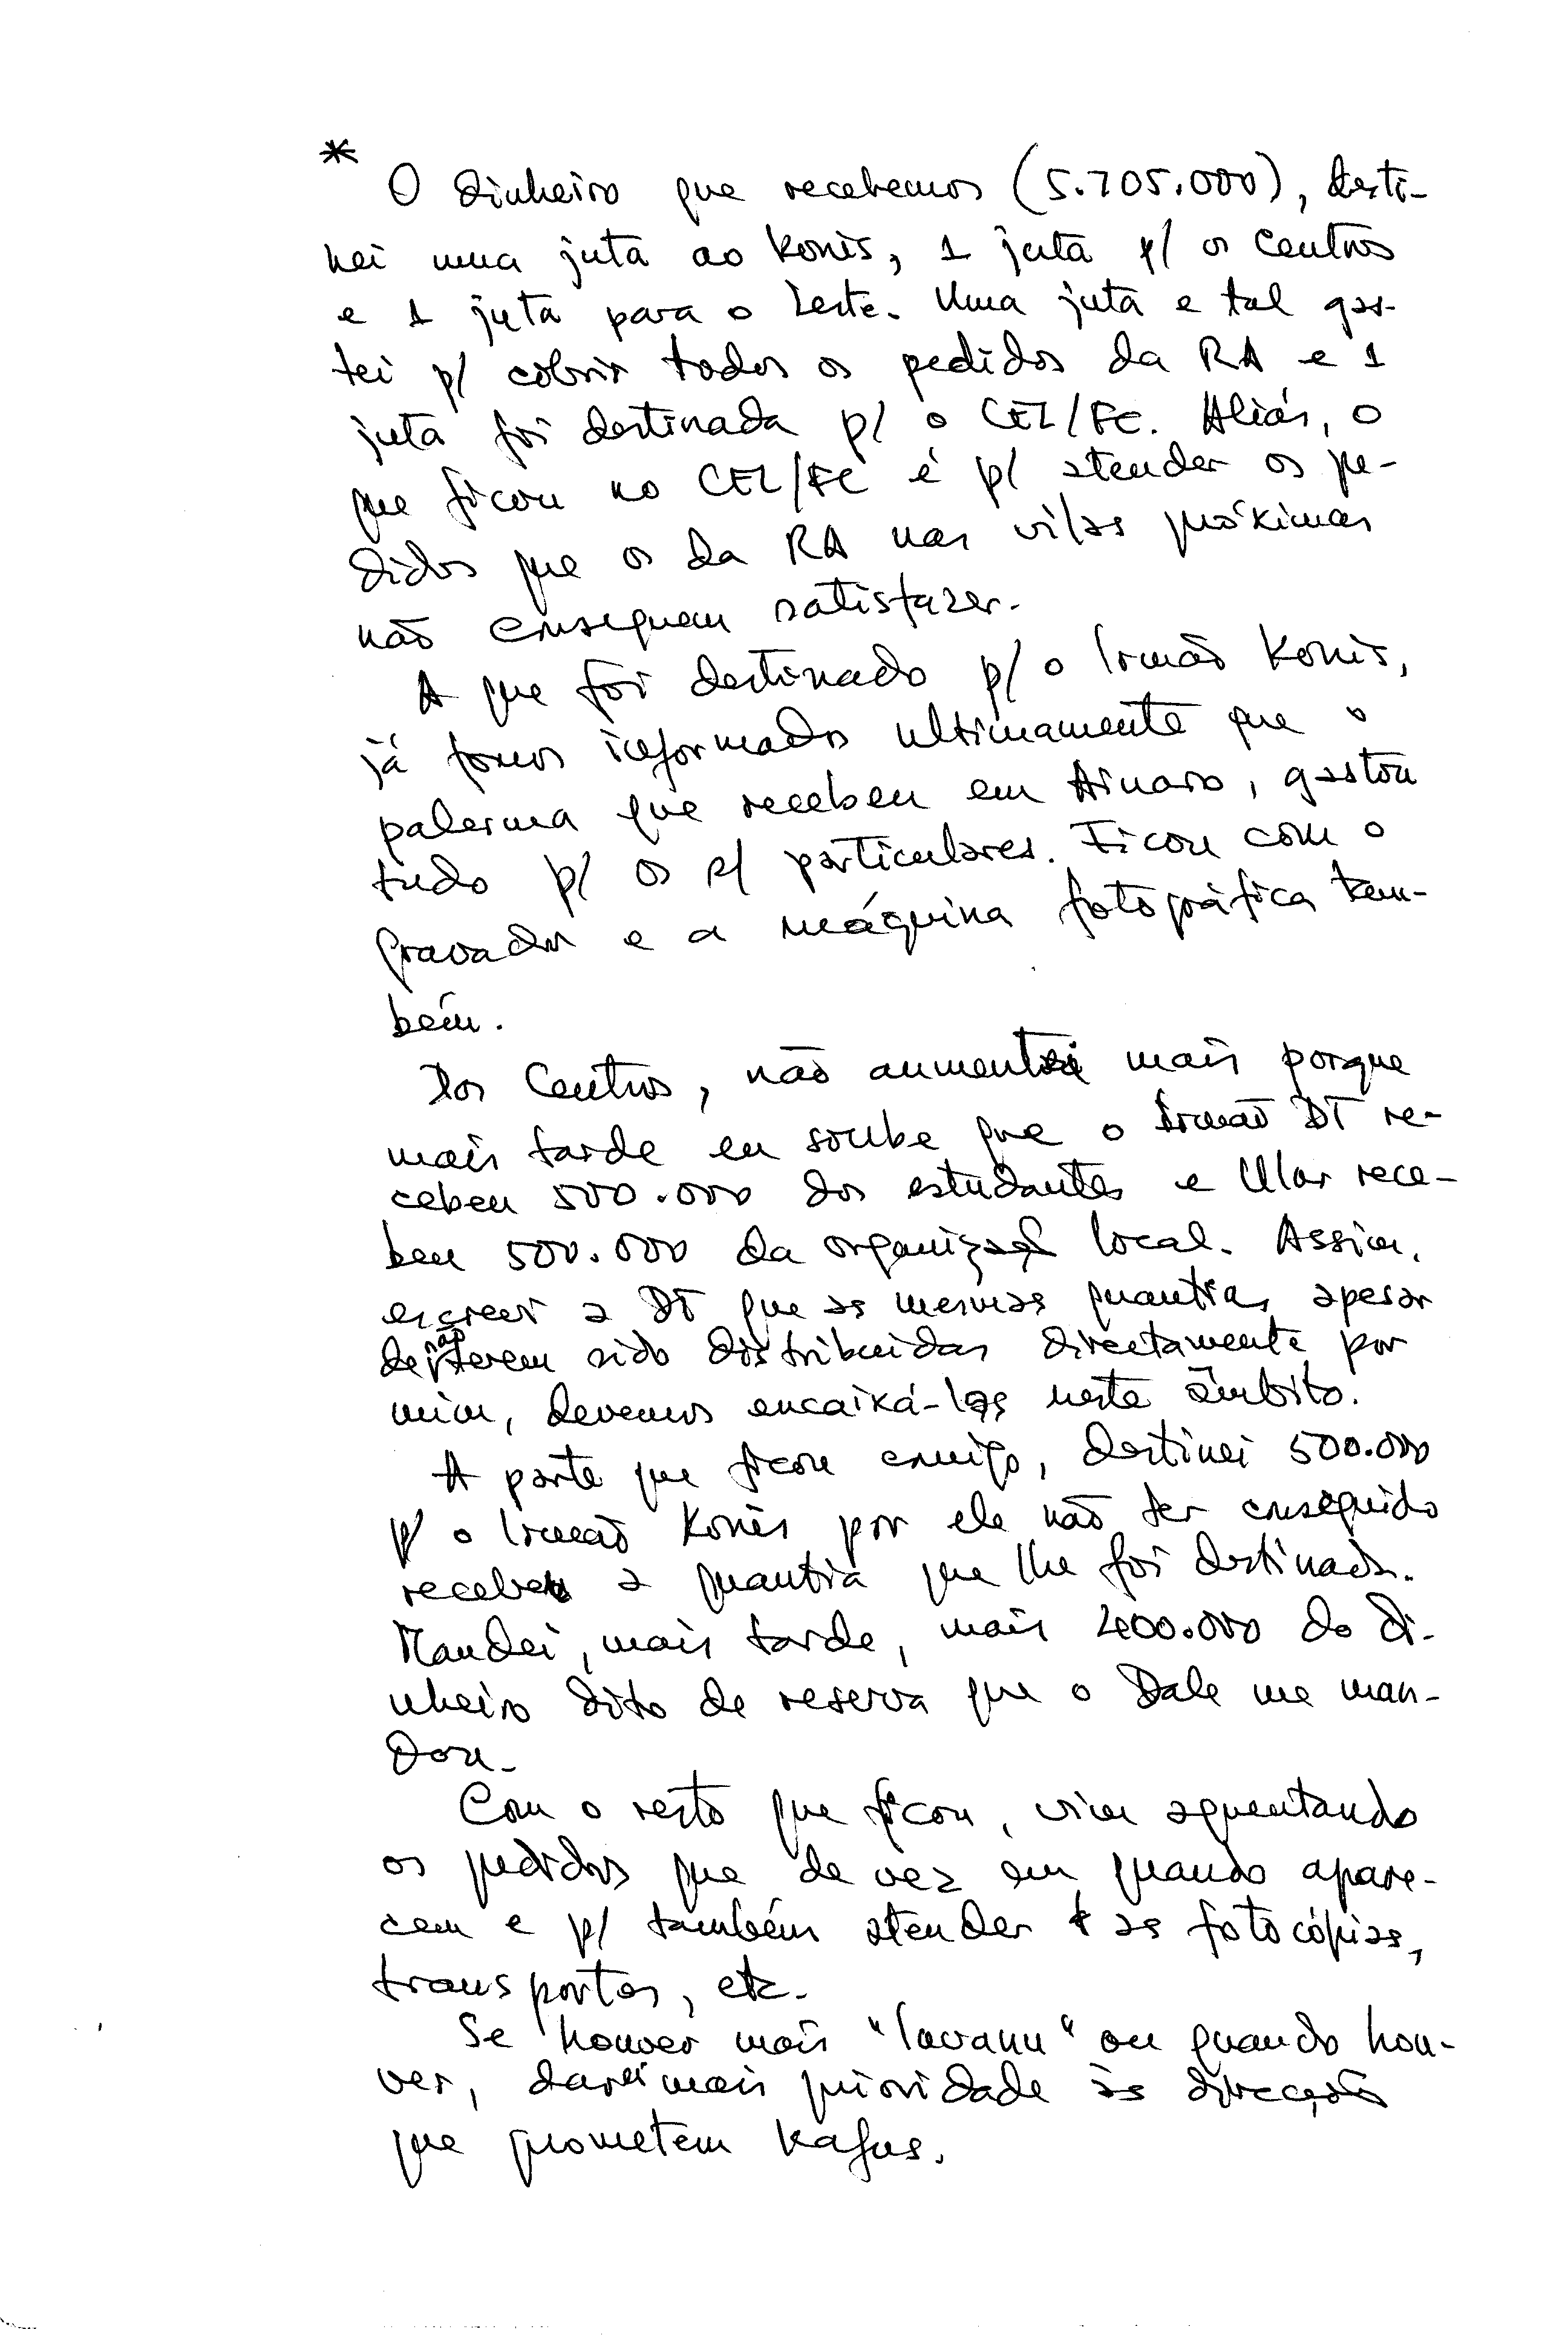 * O dinheiro que recebemos (5.705.000), desti-
nei uma juta ao Konis, 1 juta p/ os Centros
e 1 juta para o Leste. Uma juta e tal gas-
tei p/ cobrir todos os pedidos da RA e 1
juta foi destinada p/ o CEL/FC. Aliás, o
que ficou no CEL/FC é p/ atender os pe-
didos que os da RA nas vilas próximas
não conseguem satisfazer.
A que foi destinado p/ o Irmão Konis,
já fomos informados ultimamente que o
palerma que recebeu em Ainaro, gastou
tudo p/ os s/ particulares. Ficou com o
gravador e a máquina fotográfica tam-
bém.
Dos Centros, não aumentei mais porque
mais tarde eu soube que o Irmão DT re-
cebeu 500.000 dos estudantes e Ular rece-
beu 500.000 da organização local. Assim,
escrevi a DT que as mesmas quantias, apesar
de não terem sido distribuidas directamente por
mim, devemos encaixá-las neste âmbito.
A parte que ficou comigo, destinei 500.000
p/ o Irmão Konis por ele não ter conseguido
receber a quantia que lhe foi destinada.
Mandei, mais tarde, mais 400.000 do di-
nheiro dito de reserva que o Dale me man-
dou.
Com o resto que ficou, vim aguentando
os pedidos que de vez em quando apare-
cem e p/ também atender as fotocópias,
transportes, etc.
Se houver mais "lavanu" ou quando hou-
ver, darei mais prioridade às direcções
que prometem kafus.